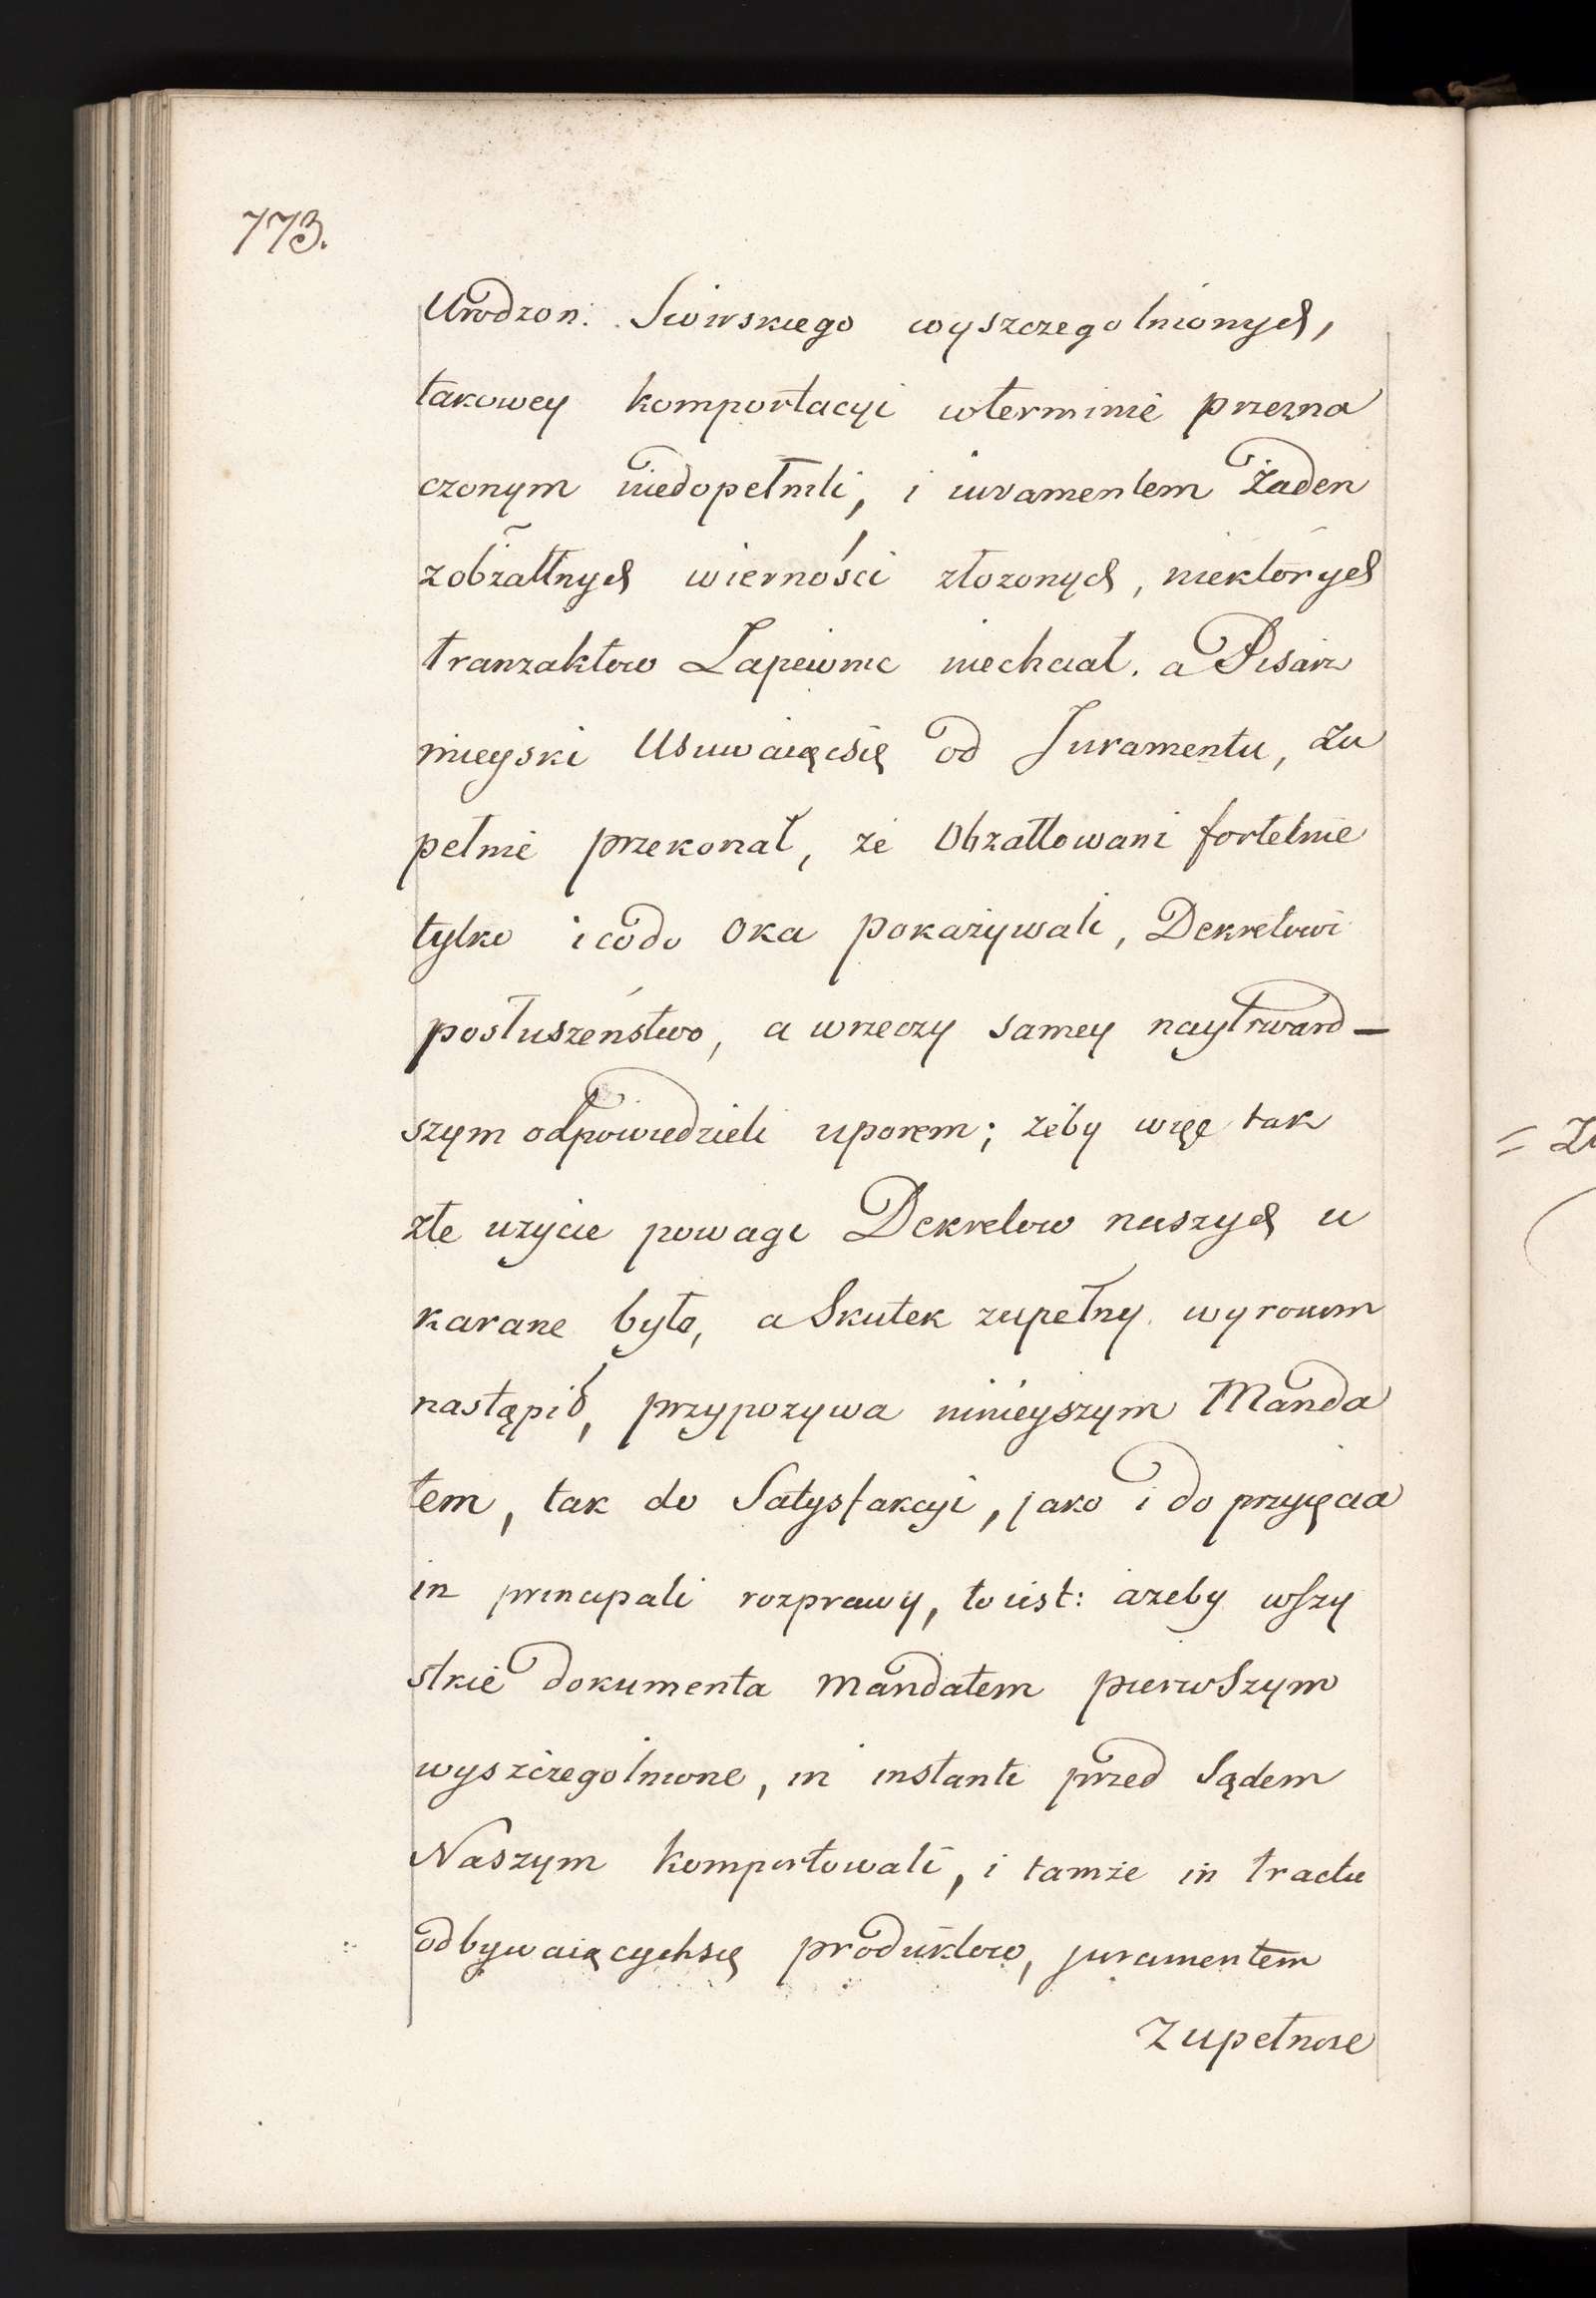 773.
Urodzon: Swirskiego wyszczegolnionych,
takowey komportacyi wterminie przezna
czonym niedopełnili, i iuramentem Żaden
zobżałłnych wierności złożonych, niektórych
tranzaktow Zapewnic niechciał. a Pisarz
mieyski Usuwaiącsię od Juramentu, zu
pełnie przekonał, że Obżałłowani fortelnie
tylko i codo Oka pokazywali, Dekretowi
posłuszeństwo, a wrzeczy samey naytward-
szym odpowiedzieli uporem; żeby więc tak
złe użycie powagi Dekretow naszych u
karane było, a Skutek zupełny wyrokom
nastąpił, przypozywa ninieyszym Manda
tem, tak do Satysfakcyi, jako i do przyięcia
in principali rozprawy, to iest: ażeby wszy
stkie dokumenta mandatem pierwszym
wyszczegolnione, in instanti przed Sądem
Naszym komportowali, i tamże in tractu
odbywaiącychsię produktow, juramentem
Zupełność
= Zu